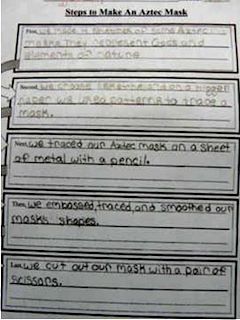 Steps to Make An Aztec Mask
First, we made a sketch of some Aztec
masks. They represent Gods and
elements of nature
Second, we on a bigger
paper we used patterns to trace a
mask.
Next, we traced our Aztec mask on a sheet
of metal with a pencil.
Then, we embossed, traced, and smoothed our
masks shapes.
Last, we cut out our mask with a pair of
scissors.